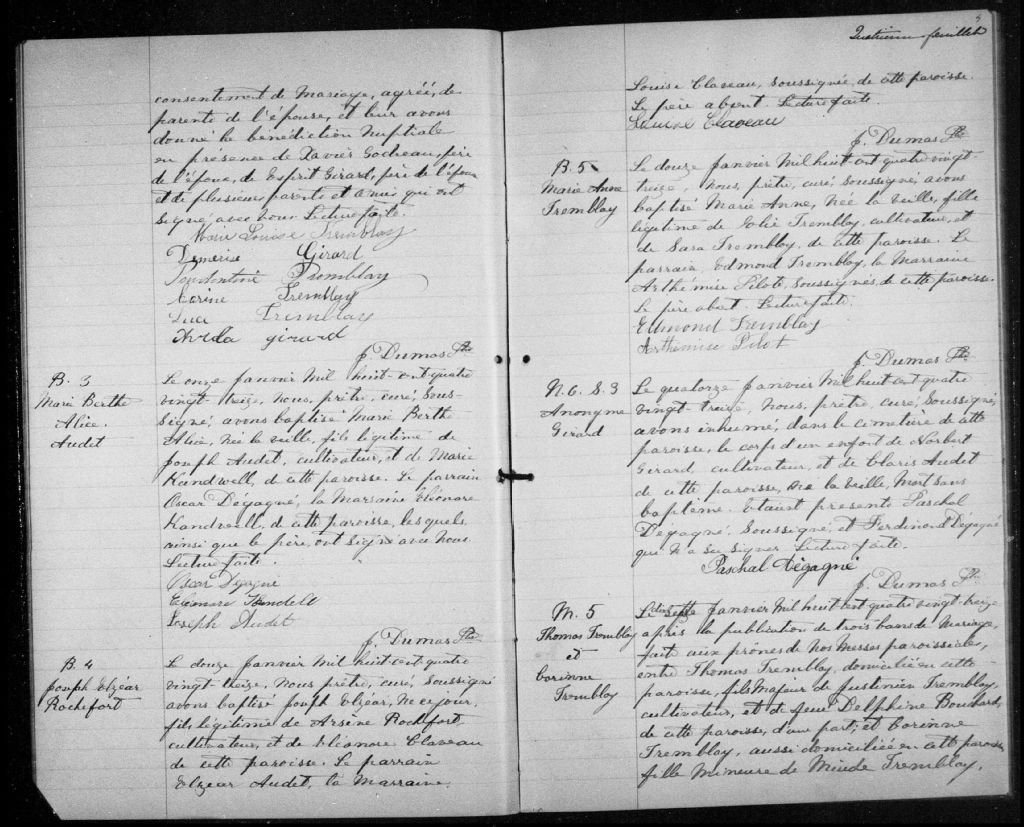 consentement de Mariage, agréé, des
parents de l'épouse, et leur avons
donné la bénédiction Nuptiale
en présence de Xavier Godreau, père
de l'époux, de Esprit Girard, père de l'épouse
et de plusieurs parents et amis qui ont
signé avec nous Lecture faite.
Marie Louise Tremblay
Démerise Girard
Tremblay
Corine Tremblay
Luce Tremblay
Arilda girard
J. Dumas Ptre
B. 3
Marie Berthe
Alice.
Audet
Le onze Janvier Mil huit-cent quatre
vingt-treize, nous, prêtre, curé, sous-
signé, avons baptisé Marie Berthe
Alice, Née la veille, fille légitime de
Joseph Audet, cultivateur, et de Marie
Kandwell, de cette paroisse. Le parrain
Oscar Dégagné, la Marraine Eléonore
Kandwell, de cette paroisse, lesquels
ainsi que le père, ont signé avec Nous.
Lecture faite.
Oscar Dégagné
Eléonore
Joseph Audet
J. Dumas Ptre
B. 4
Joseph Elzéar
Rochefort
Le douze Janvier Mil huit-cent quatre
vingt-treize, Nous prêtre, curé, Soussigné
avons baptisé Joseph Elzéar, Né ce jour,
fils légitime de Arsène Rochefort,
cultivateur, et de Eléonore Claveau
de cette paroisse. Le parrain
Elzéar Audet, la Marraine
Quatrième feuillet
Louise Claveau, soussignée de cette paroisse.
Le père absent. Lecture faite.
Louise Claveau
J. Dumas Ptre
B. 5
Marie Anne
Tremblay
Le douze Janvier Mil huit-cent quatre vingt-
treize, Nous, prêtre, curé, soussigné, avons
baptisé Marie Anne, Née la veille, fille
légitime de Tremblay, cultivateur, et
de Sara Tremblay, de cette paroisse. Le
parrain, Edmond Tremblay, la Marraine
Arthémise Pilote, soussignés, de cette paroisse.
Le père absent. Lecture faite.
Edmond Tremblay
Arthémise Pilot
J. Dumas Ptre
S. 3
Anonyme
Girard
Le quatorze Janvier Mil huit cent quatre
vingt-treize, Nous, prêtre, curé, Soussigné,
avons inhumé, dans le cimetière de cette
paroisse, le corps d'un enfant de Norbert
Girard, cultivateur, et de Claris Audet
de cette paroisse, né la veille, Mort sans
baptême. Etaient présents Paschal
Dégagné, Soussigné, et Ferdinand Dégagné
qui N'a su signer. Lecture faite.
Paschal Dégagné
J. Dumas Ptre
M. 5
Thomas Tremblay
et
Corinne
Tremblay
Le Janvier Mil huit-cent quatre vingt-treize
après la publication de trois bans de Mariage,
fait aux prônes de Nos Messes paroissiales,
entre Thomas Tremblay, domicilié en cette
paroisse, fils Majeur de Justinien Tremblay,
cultivateur, et de feue Delphine Bouchard,
de cette paroisse, d'une part; et Corinne
Tremblay, aussi domiciliée en cette paroisse
fille Mineure de Tremblay,